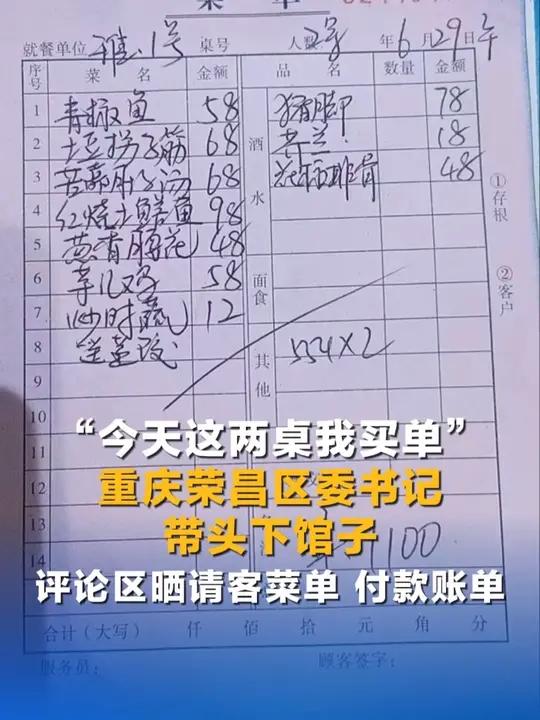 菜 单
就餐单位 雅.1号 桌号 人数 年6月29日午
序号 菜 名 金额 品 名 数量 金额
1 青椒鱼 58 猪脚 78
2 土豆拐子筋 68 酒水 芥兰. 18
3 苦藠肚子汤 68 排骨 48
4 红烧土鳝鱼 98
5 葱香腰花 48
6 芋儿鸡 58 面食
7 炒时蔬 12
8 其他 554×2
9
10
“今天这两桌我买单”
重庆荣昌区委书记
带头下馆子
12
13
14 1100
评论区晒请客菜单 付款账单
合计(大写) 仟 佰 拾 元 角 分
服务员: 顾客签字:
①存根
②客户